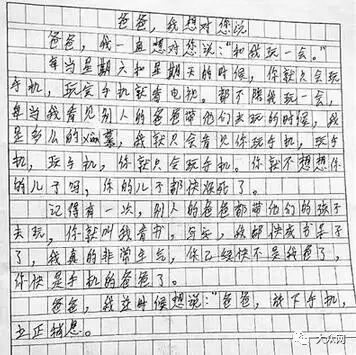 爸爸，我想对您说
爸爸，我一直想对您说：“和我玩一会。”
每当星期六和星期天的时候，你就只会玩
手机，玩完手机就看电视。都不陪我玩一会，
每当我看见别人的爸爸带他们去玩的时候，我
是多么的羡慕，我就只会看见你玩手机，玩手
机，玩手机，你就只会玩手机。你就不想想你
的儿子吗，你的儿子都快疯死了。
记得有一次，别人的爸爸都带他们的孩子
去玩，你就叫我看书，写字，我都快成书呆子
了，我真的非常生气，你已经快不是我爸了，
你快是手机的爸爸了。
爸爸，我这时候想说：“爸爸，放下手机，
立正稍息。
大众网